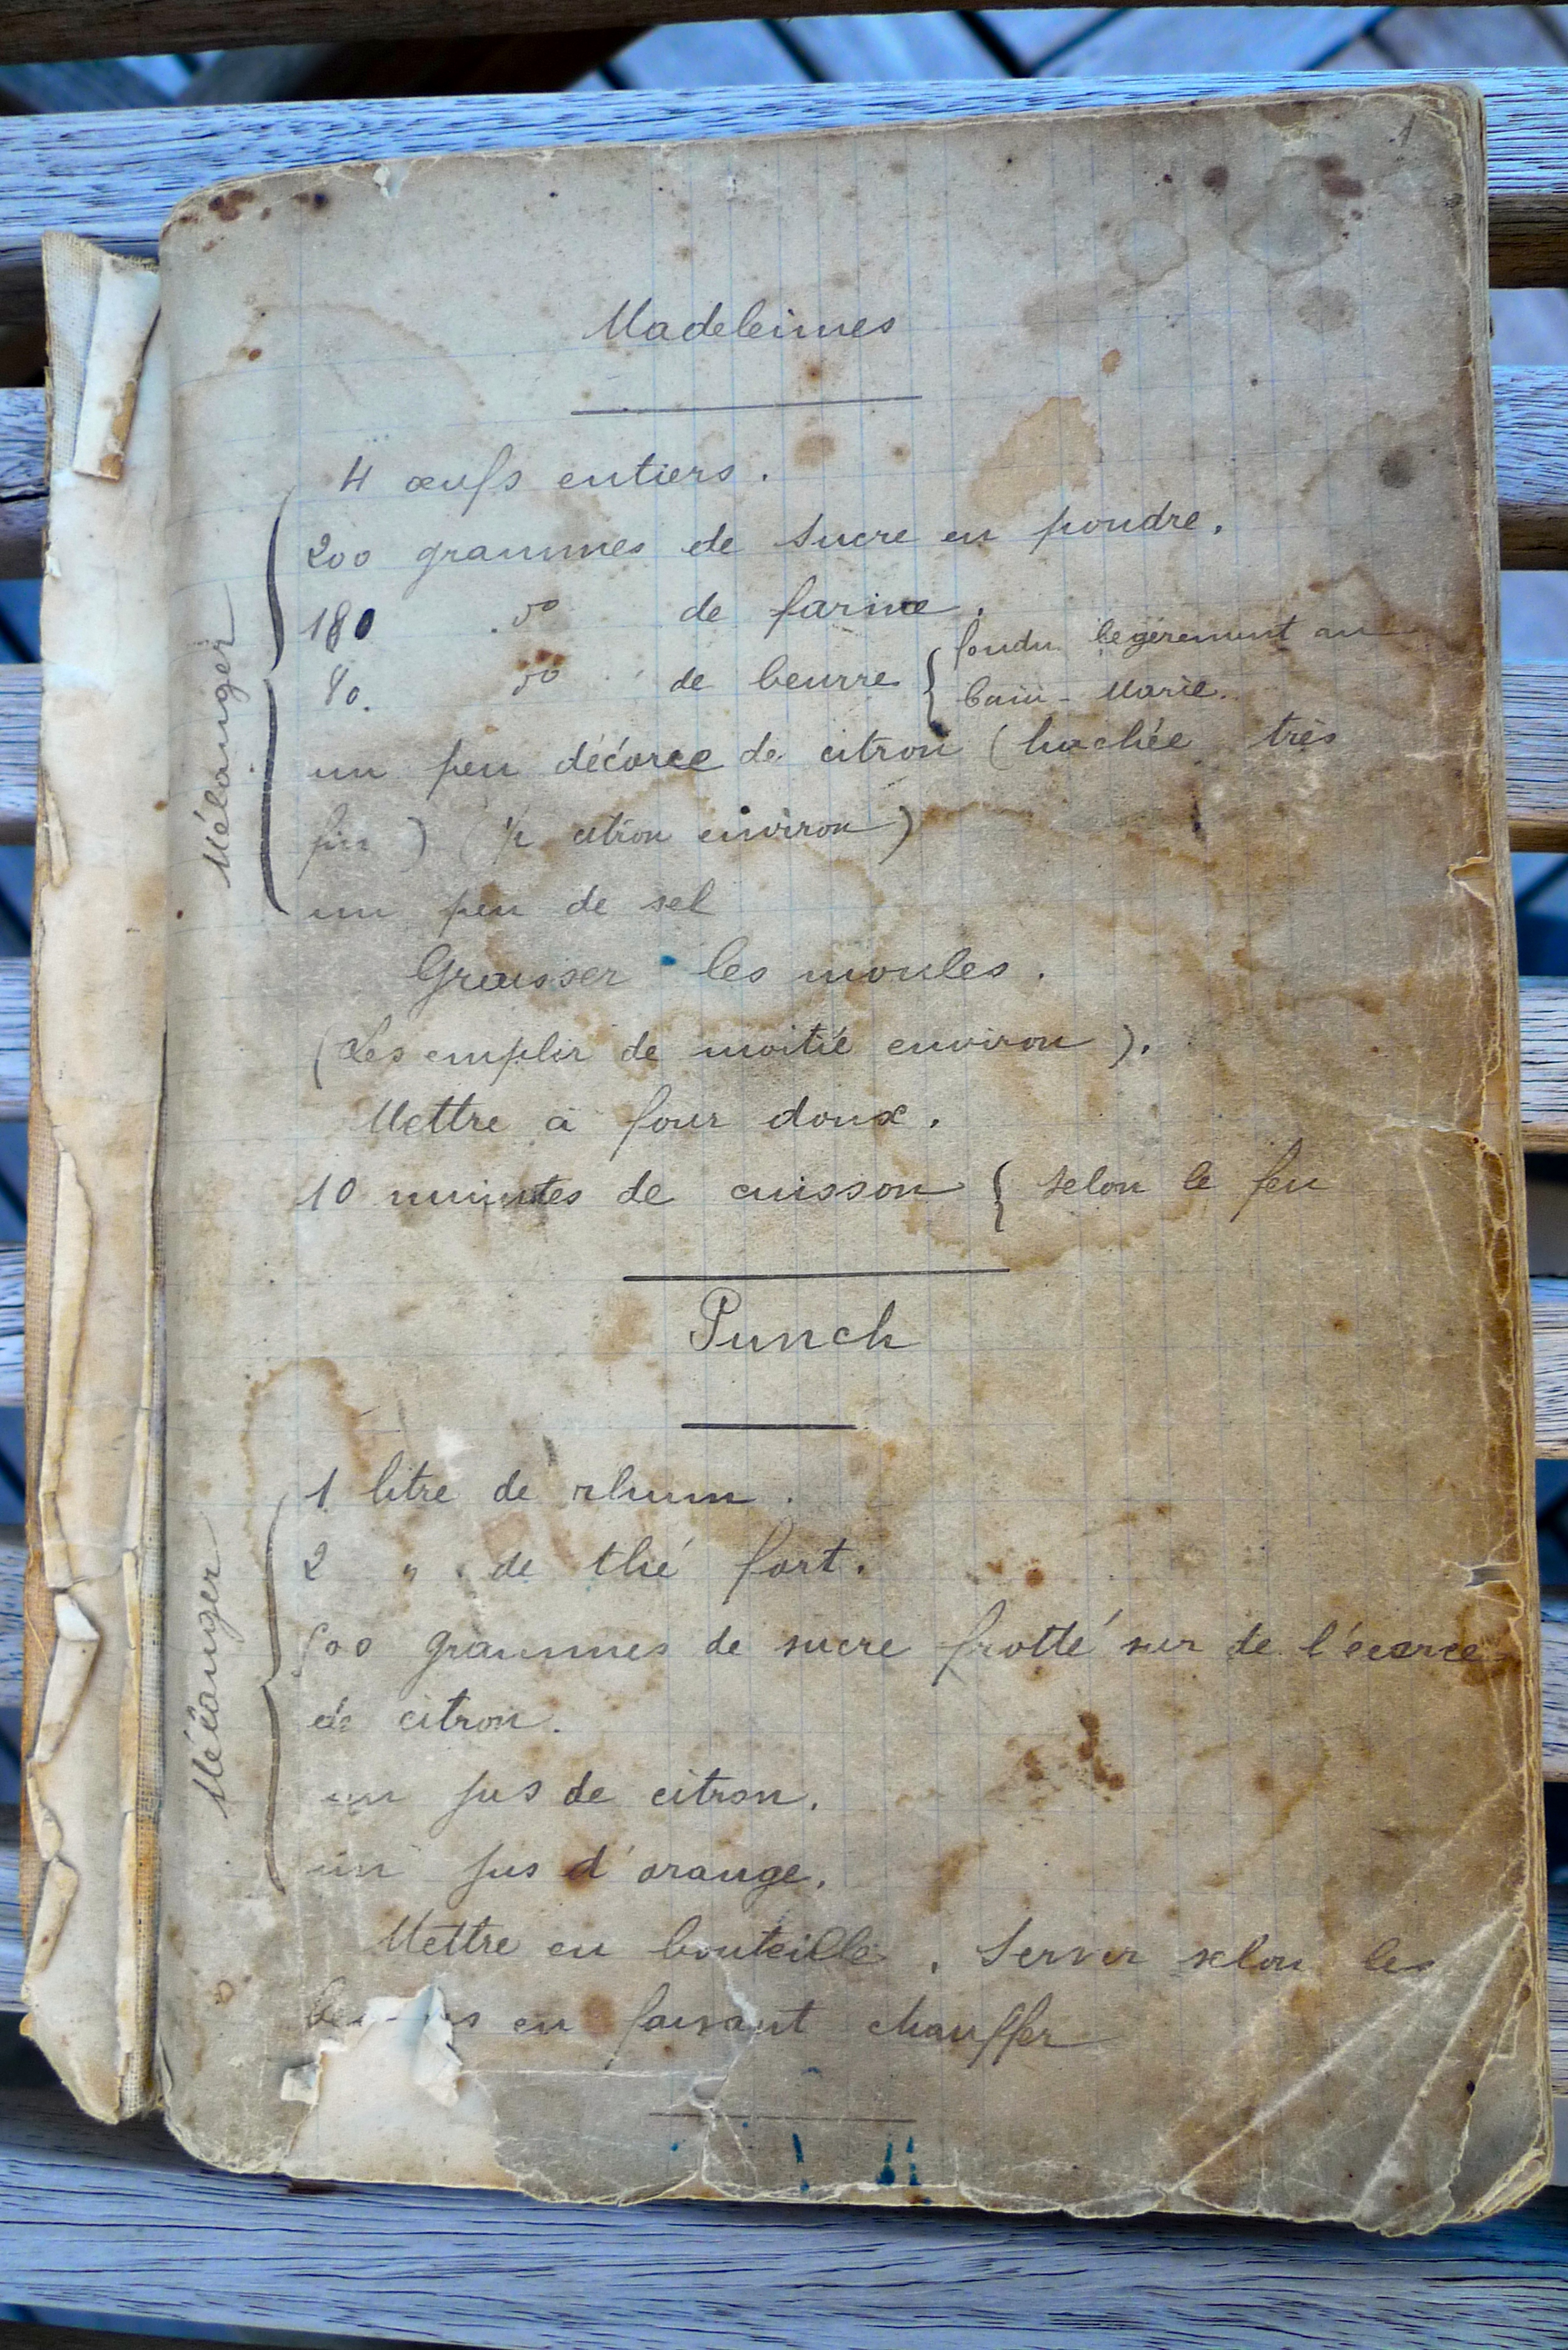 1
Madeleines
Mélanger
4 œufs entiers.
200 grammes de sucre en poudre.
180 do de farine.
80. do de beurre { fondu légèrement au
bain-Marie.
un peu décorce de citron (hachée très
fin) (1/2 citron environ)
un peu de sel
Graisser les moules.
(Les emplir de moitié environ).
Mettre à four doux.
10 minutes de cuisson { selon le feu
Punch
Mélanger
1 litre de rhum.
2 " de thé fort.
grammes de sucre frotté sur de l'écorce
de citron.
un jus de citron.
un jus d'orange.
Mettre en bouteille. Servir selon les
en faisant chauffer